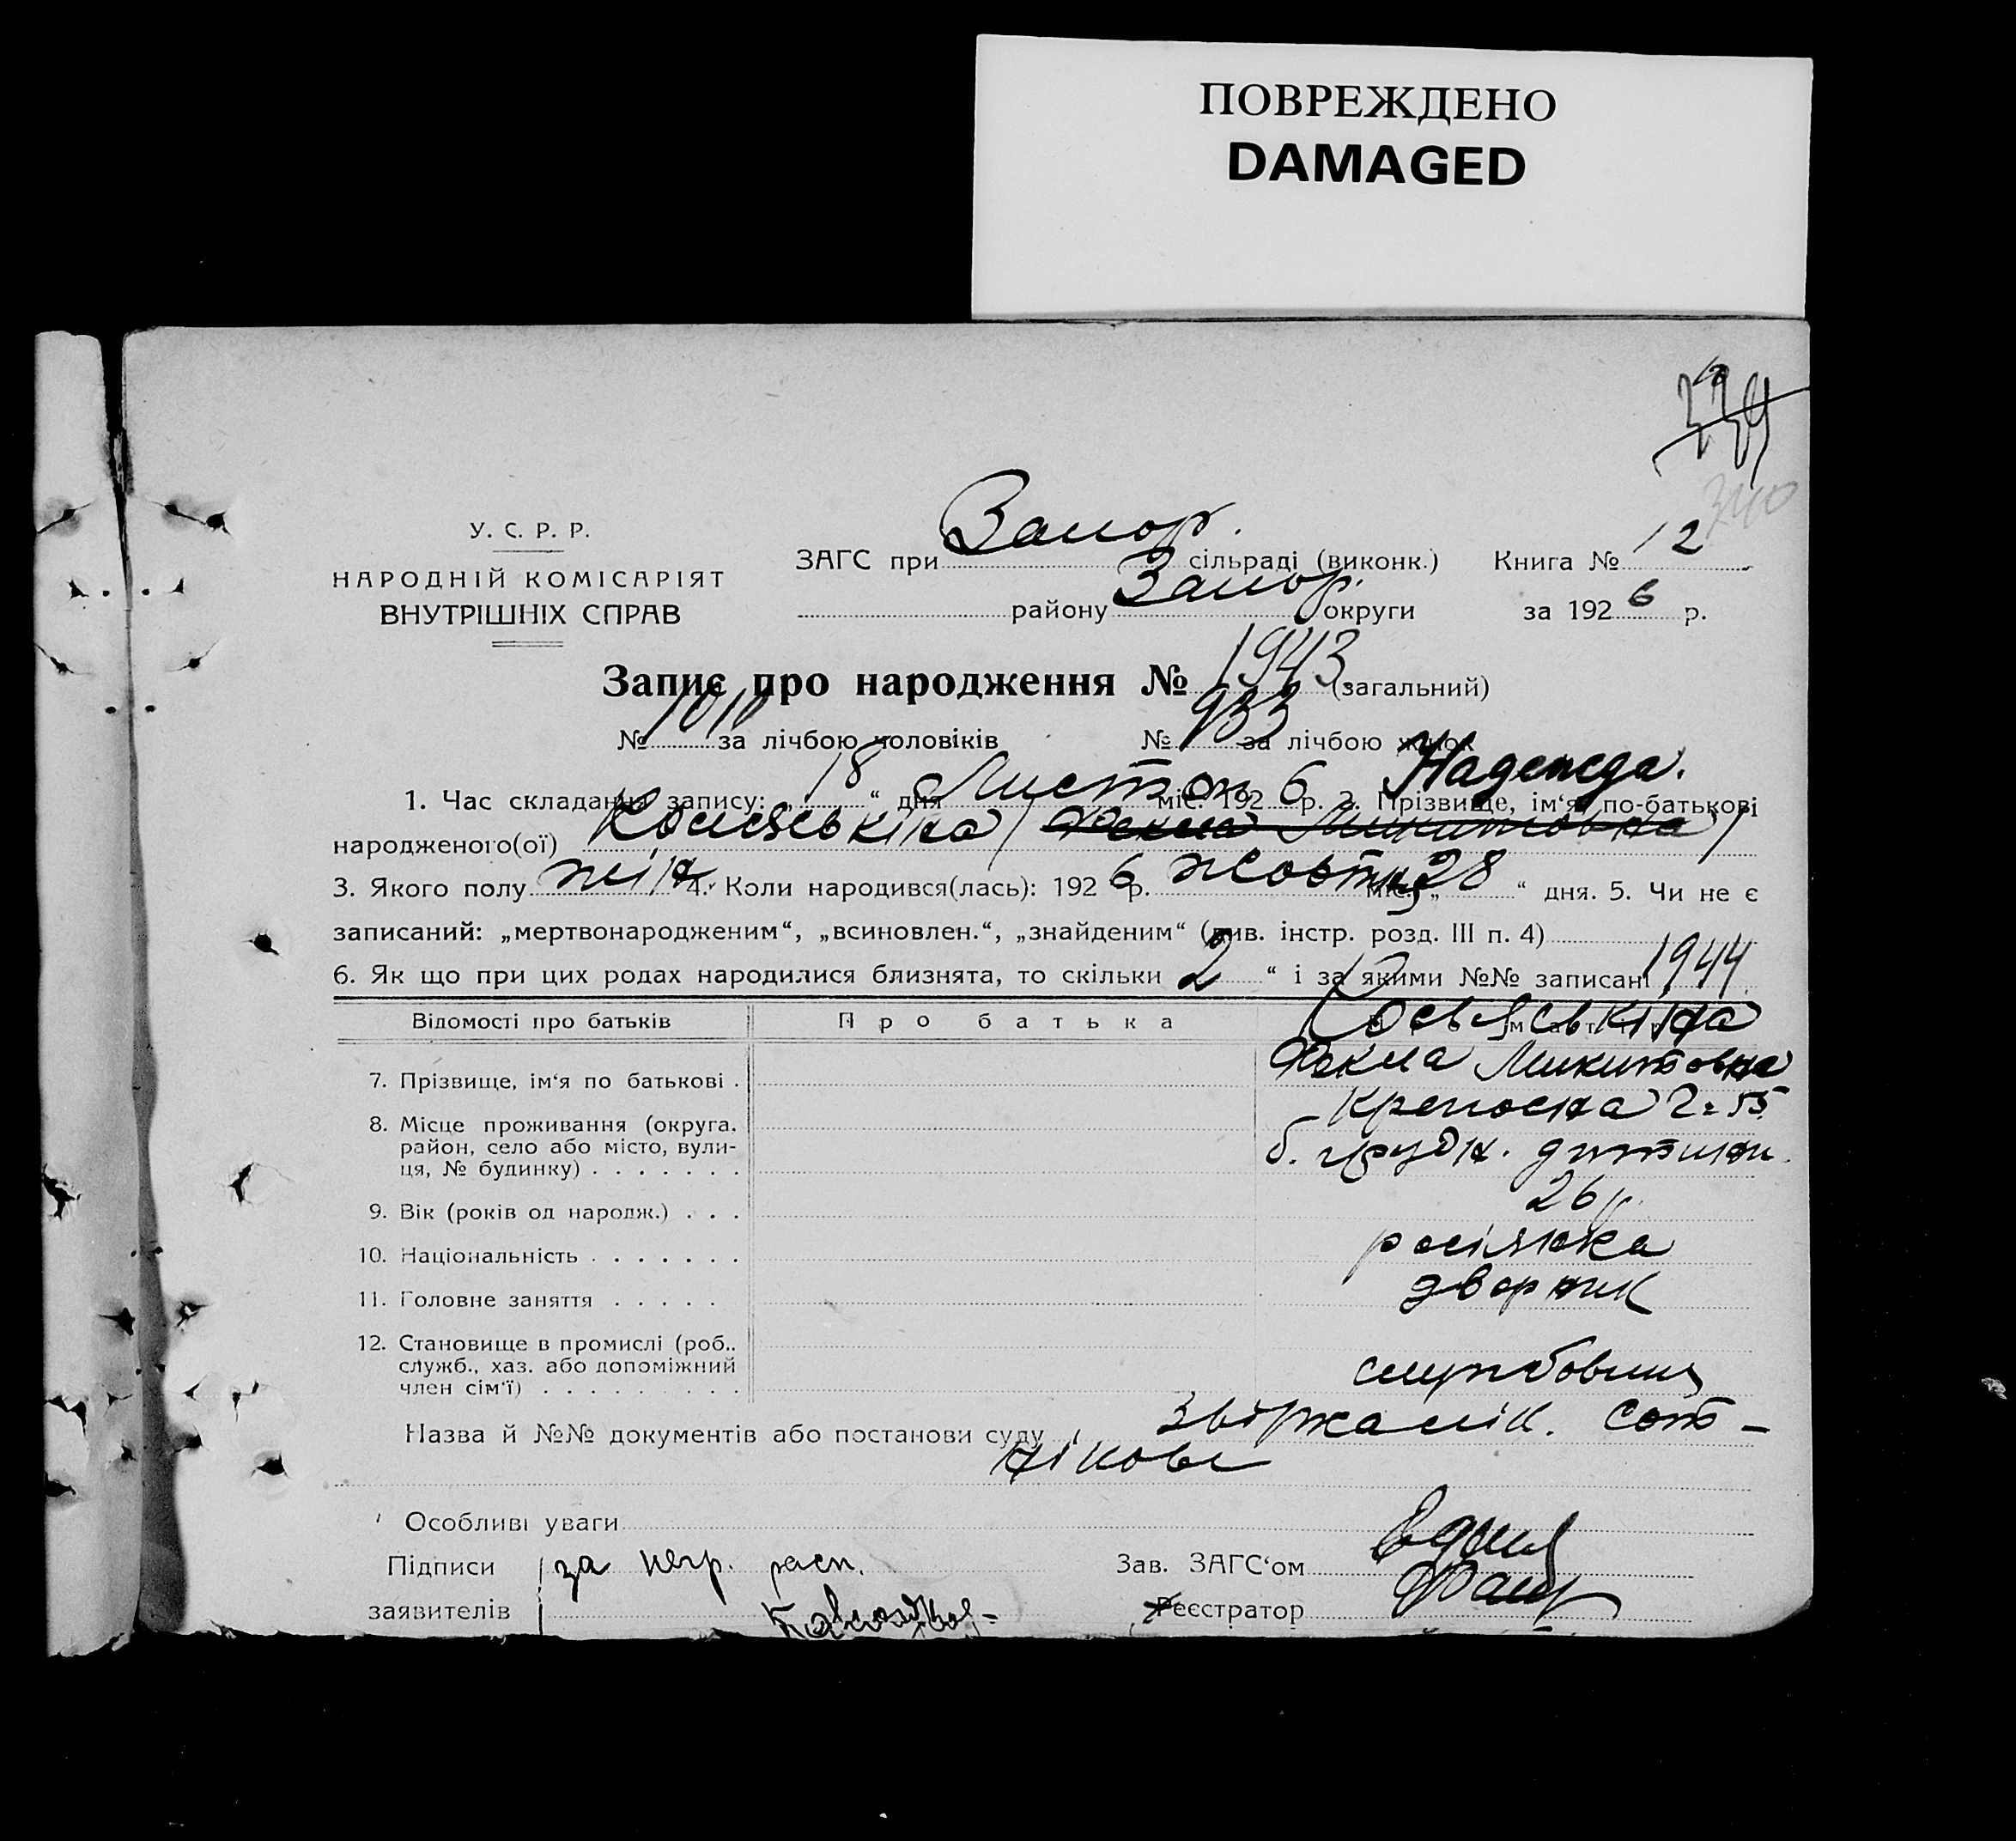 ПОВРЕЖДЕНО
DAMAGED
739
340
У. С. Р. Р.
НАРОДНІЙ КОМІСАРІЯТ
ВНУТРІШНІХ СПРАВ
ЗАГС при Запор. сільраді (виконк.) Книга № 12
району Запор. округи за 1926 р.
Запис про народження № 1943 (загальний)
№ 1010 за лічбою чоловіків № 933 за лічбою жінок
Надежда.
1. Час складання запису: „18“ дня Листоп міс. 1926 р. 2. Прізвище, ім‘я, по-батькові
народженого(ої) (Фекла Микитовна)
3. Якого полу жін 4. Коли народився(лась): 1926 р. жовтня міс. „28“ дня. 5. Чи не є
записаний: „мертвонародженим“, „всиновлен.“, „знайденим“ (див. інстр. розд. III п. 4)
6. Як що при цих родах народилися близнята, то скільки 2 “ і за якими №№ записані 1944
Відомості про батьків Про батька
7. Прізвище, ім‘я по батькові . Фекла Микитовна
8. Місце проживання (округа, район, село або місто, вулиця, № будинку) . . . . . . . б. грудн. дитини.
9. Вік (років од народж.) . . . 26 р.
10. Національність . . . . . . . росіянка
11. Головне заняття . . . . . дворник
12. Становище в промислі (роб., служб., хаз. або допоміжний член сім‘ї) . . . . . . . . . службовиця
Назва й №№ документів або постанови суду
Особливі уваги
Підписи за негр. расп. Зав. ЗАГС‘ом
заявителів Реєстратор